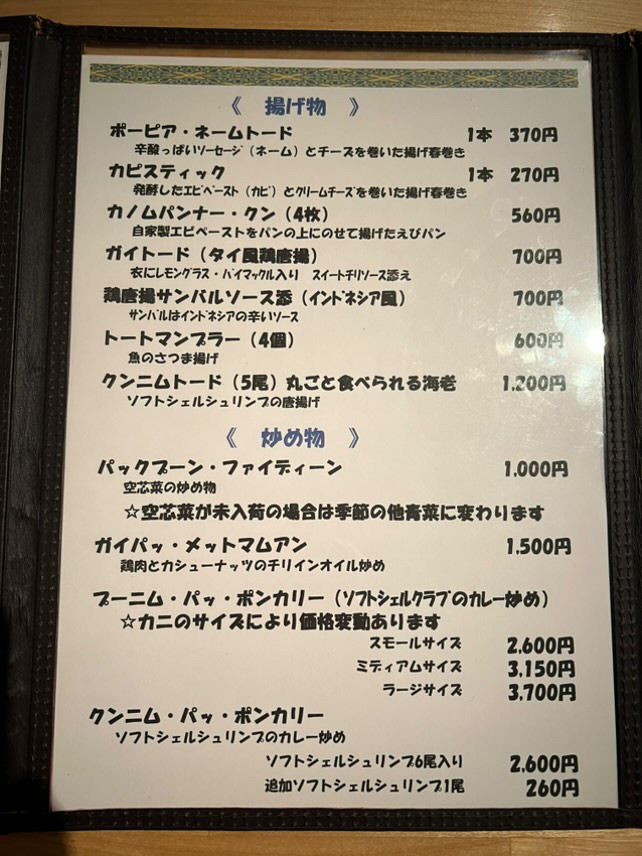 《 揚げ物 》
ポーピア・ネームトード 1本 370円
辛酸っぱいソーセージ（ネーム）とチーズを巻いた揚げ春巻き
カピスティック 1本 270円
発酵したエビペースト（カピ）とクリームチーズを巻いた揚げ春巻き
カノムパンナー・クン（4枚） 560円
自家製エビペーストをパンの上にのせて揚げたえびパン
ガイトード（タイ風鶏唐揚） 700円
衣にレモングラス・バイマックル入り スイートチリソース添え
鶏唐揚サンバルソース添（インドネシア風） 700円
サンバルはインドネシアの辛いソース
トートマンプラー（4個） 600円
魚のさつま揚げ
クンニムトード（5尾）丸ごと食べられる海老 1,200円
ソフトシェルシュリンプの唐揚げ
《 炒め物 》
パックブーン・ファイディーン 1,000円
空芯菜の炒め物
☆空芯菜が未入荷の場合は季節の他青菜に変わります
ガイパッ・メットマムアン 1,500円
鶏肉とカシューナッツのチリインオイル炒め
プーニム・パッ・ポンカリー（ソフトシェルクラブのカレー炒め）
☆カニのサイズにより価格変動あります
スモールサイズ 2,600円
ミディアムサイズ 3,150円
ラージサイズ 3,700円
クンニム・パッ・ポンカリー
ソフトシェルシュリンプのカレー炒め
ソフトシェルシュリンプ6尾入り 2,600円
追加ソフトシェルシュリンプ1尾 260円